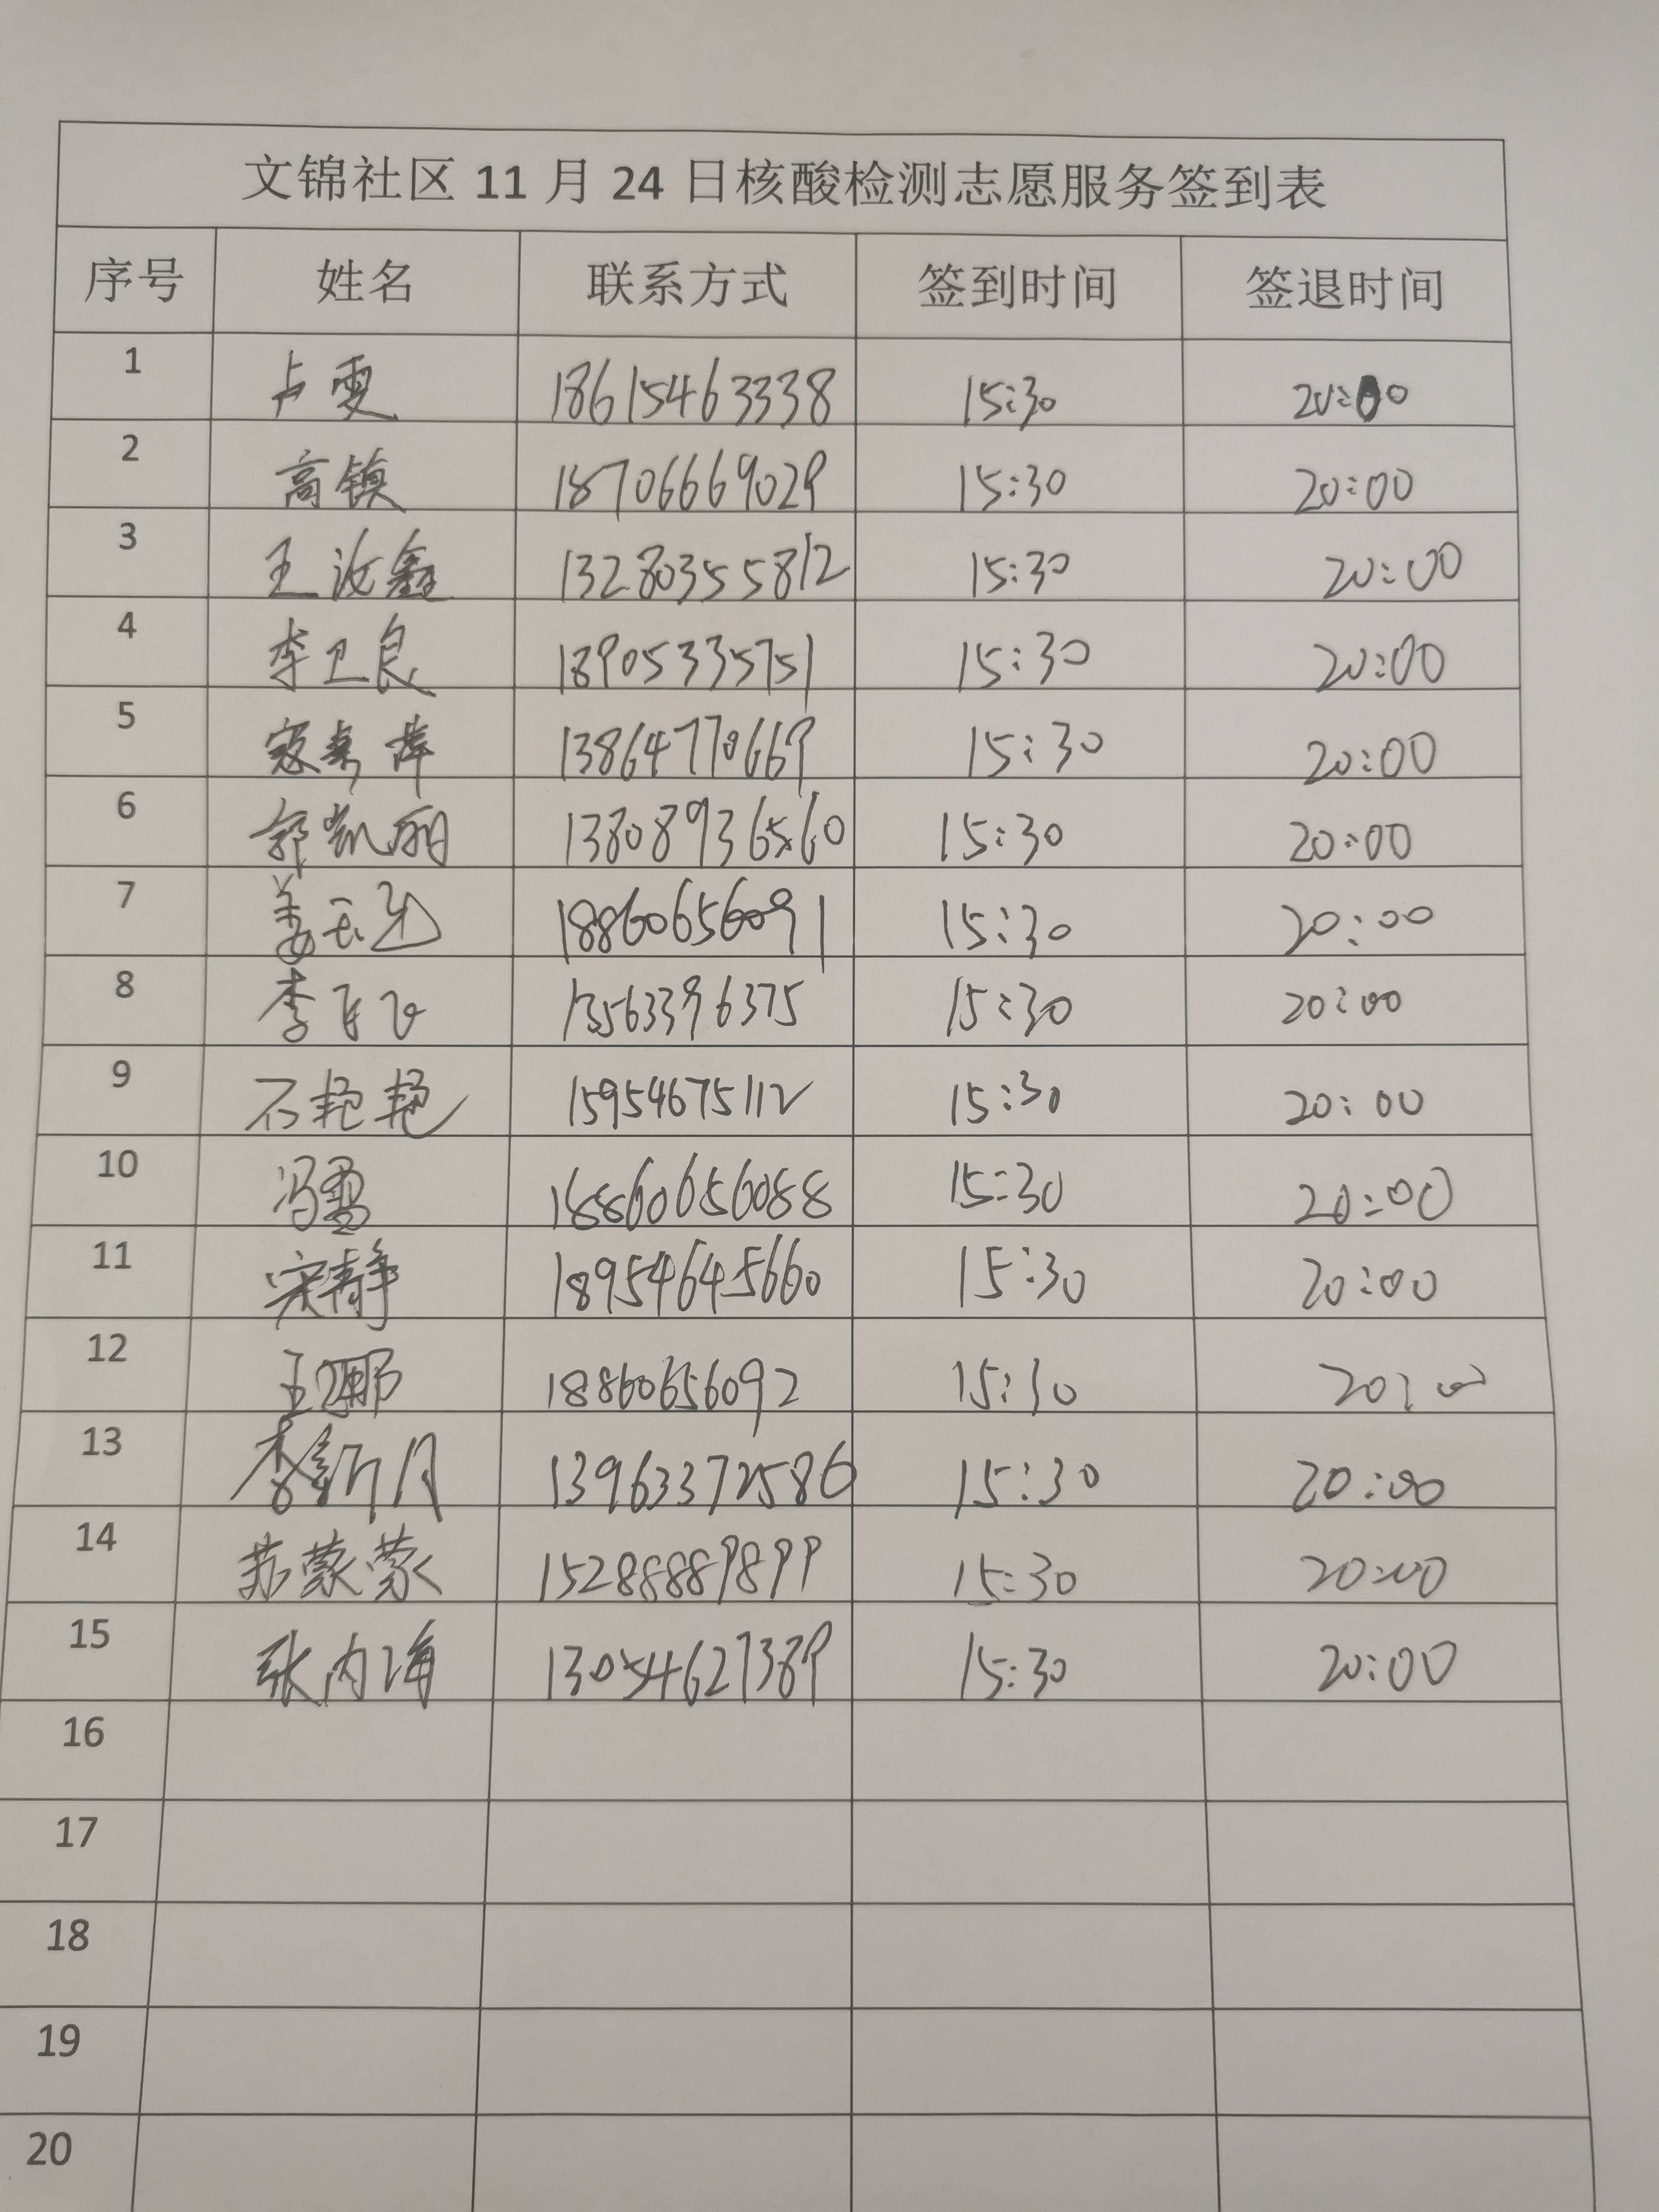 文锦社区 11 月 24 日核酸检测志愿服务签到表
序号 姓名 联系方式 签到时间 签退时间
1 卢雯 18615463338 15:30 20:00
2 高镇 18706669029 15:30 20:00
3 王汝鑫 13280355812 15:30 20:00
4 李卫良 18905335751 15:30 20:00
5 寇秀萍 13864770669 15:30 20:00
6 郭凯丽 13808936560 15:30 20:00
7 姜玉 18860656091 15:30 20:00
8 李飞飞 13563396375 15:30 20:00
9 石艳艳 15954675112 15:30 20:00
10 冯雪 18860656088 15:30 20:00
11 宋静 18954645660 15:30 20:00
12 王娜 18860656092 15:30 20:00
13 李新月 13963372586 15:30 20:00
14 苏蒙蒙 15288889899 15:30 20:00
15 张内海 13054627389 15:30 20:00
16
17
18
19
20